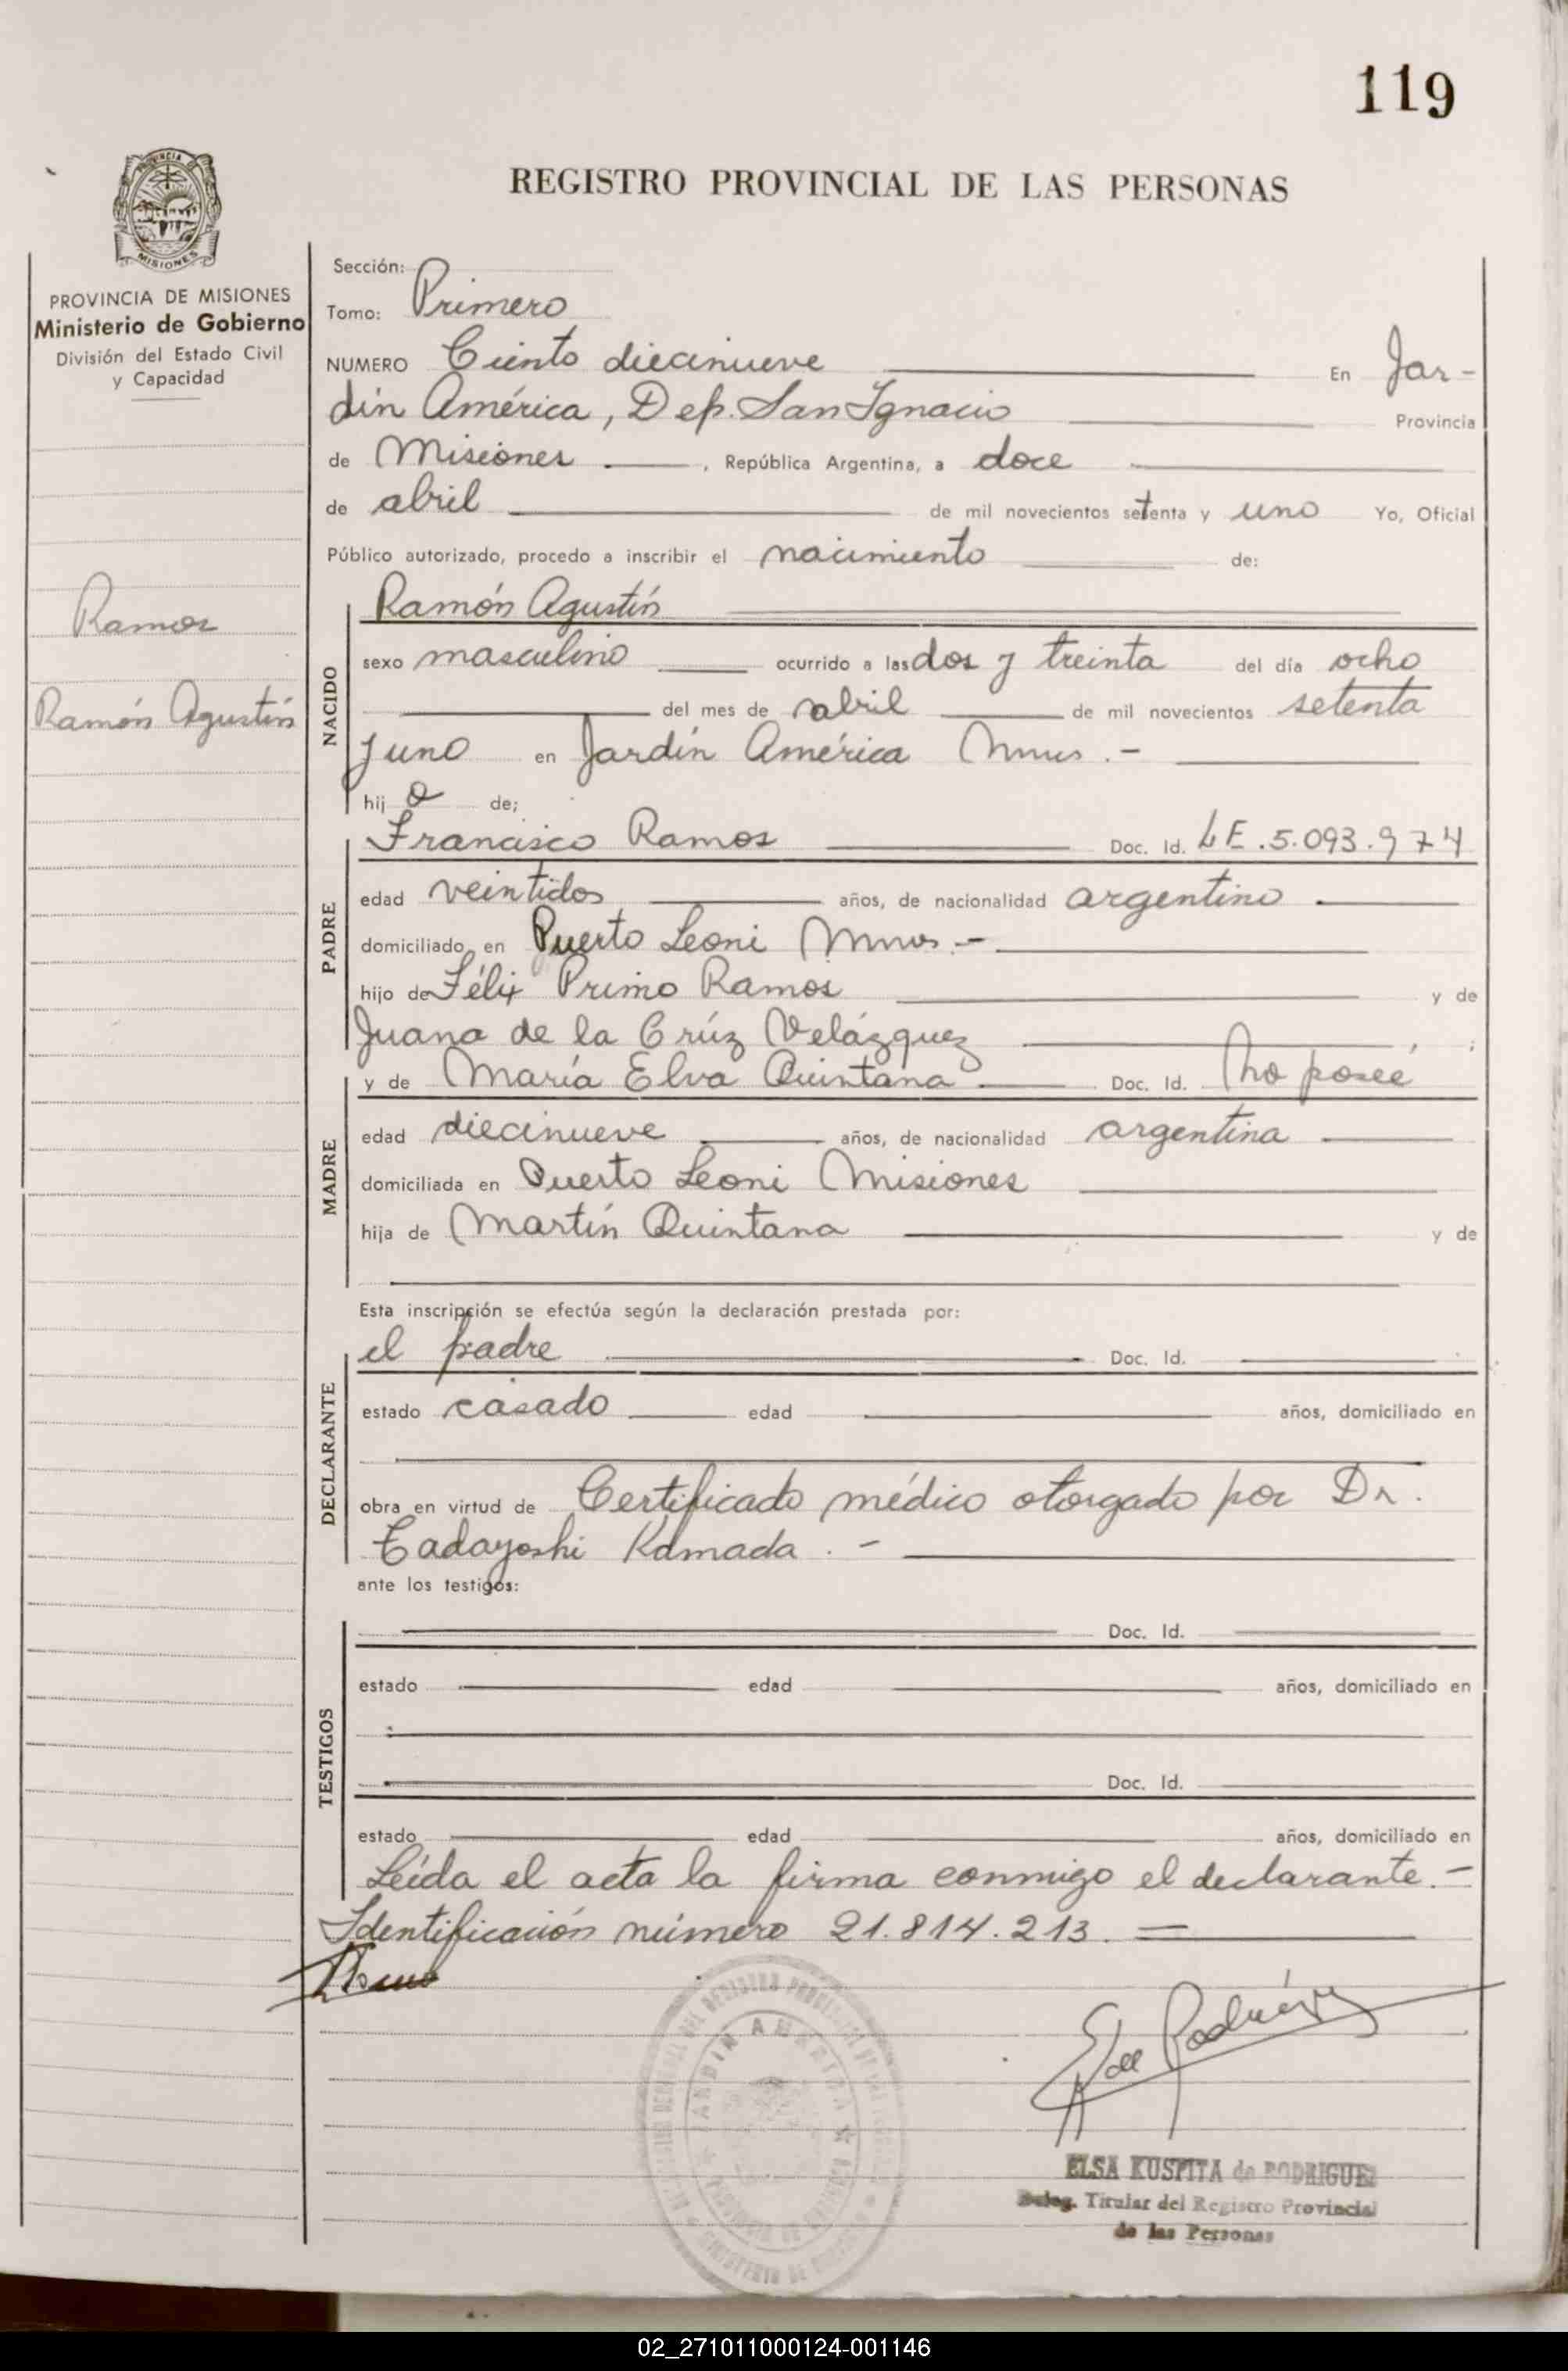 119
REGISTRO PROVINCIAL DE LAS PERSONAS
PROVINCIA DE MISIONES
Ministerio de Gobierno
División del Estado Civil
y Capacidad
Ramos
Ramón Agustín
Sección:
Tomo: Primero
NUMERO Ciento diecinueve En Jar-
dín América, Dep. San Ignacio Provincia
de Misiones, República Argentina, a doce
de abril de mil novecientos setenta y uno Yo, Oficial
Público autorizado, procedo a inscribir el nacimiento de:
NACIDO
Ramón Agustín
sexo masculino ocurrido a las dos y treinta del día ocho
del mes de abril de mil novecientos setenta
y uno en Jardín América Mnes.-
hijo de;
PADRE
Francisco Ramos Doc. Id. LE.5.093.974
edad veintidos años, de nacionalidad argentino
domiciliado en Puerto Leoni Mnes.-
hijo de Félix Primo Ramos y de
Juana de la Crúz Velázquez ;
MADRE
y de María Elva Quintana Doc. Id. No poseé
edad diecinueve años, de nacionalidad argentina
domiciliada en Puerto Leoni Misiones
hija de Martín Quintana y de
Esta inscripción se efectúa según la declaración prestada por:
DECLARANTE
el padre Doc. Id.
estado casado edad años, domiciliado en
obra en virtud de Certificado médico otorgado por Dr.
Tadayoshi Kamada.-
ante los testigos:
TESTIGOS
Doc. Id.
estado edad años, domiciliado en
Doc. Id.
estado edad años, domiciliado en
Leída el acta la firma conmigo el declarante.-
Identificación número 21.814.213.=
Ramos
E de Rodríguez
JARDIN AMERICA
ELSA KUSPITA de RODRIGUEZ
Deleg. Titular del Registro Provincial
de las Personas
02_271011000124-001146